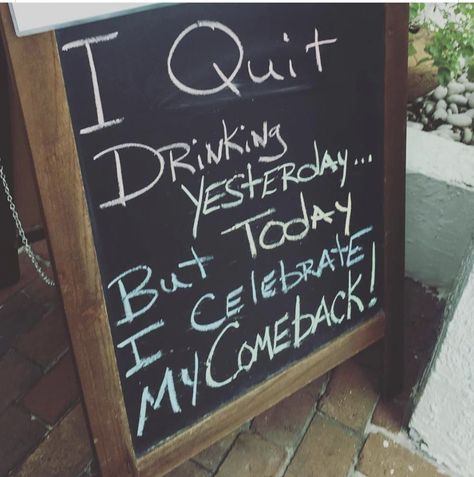 I Quit
Drinking
Yesterday...
But Today
I Celebrate
My Comeback!